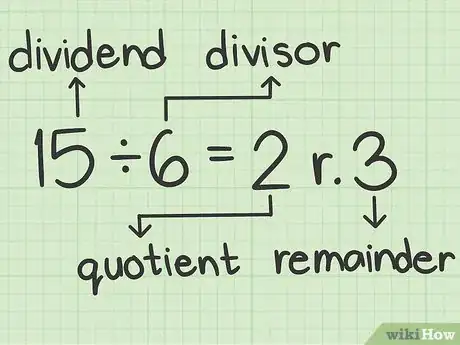 dividend divisor
15 ÷ 6 = 2 r. 3
quotient remainder
wikiHow